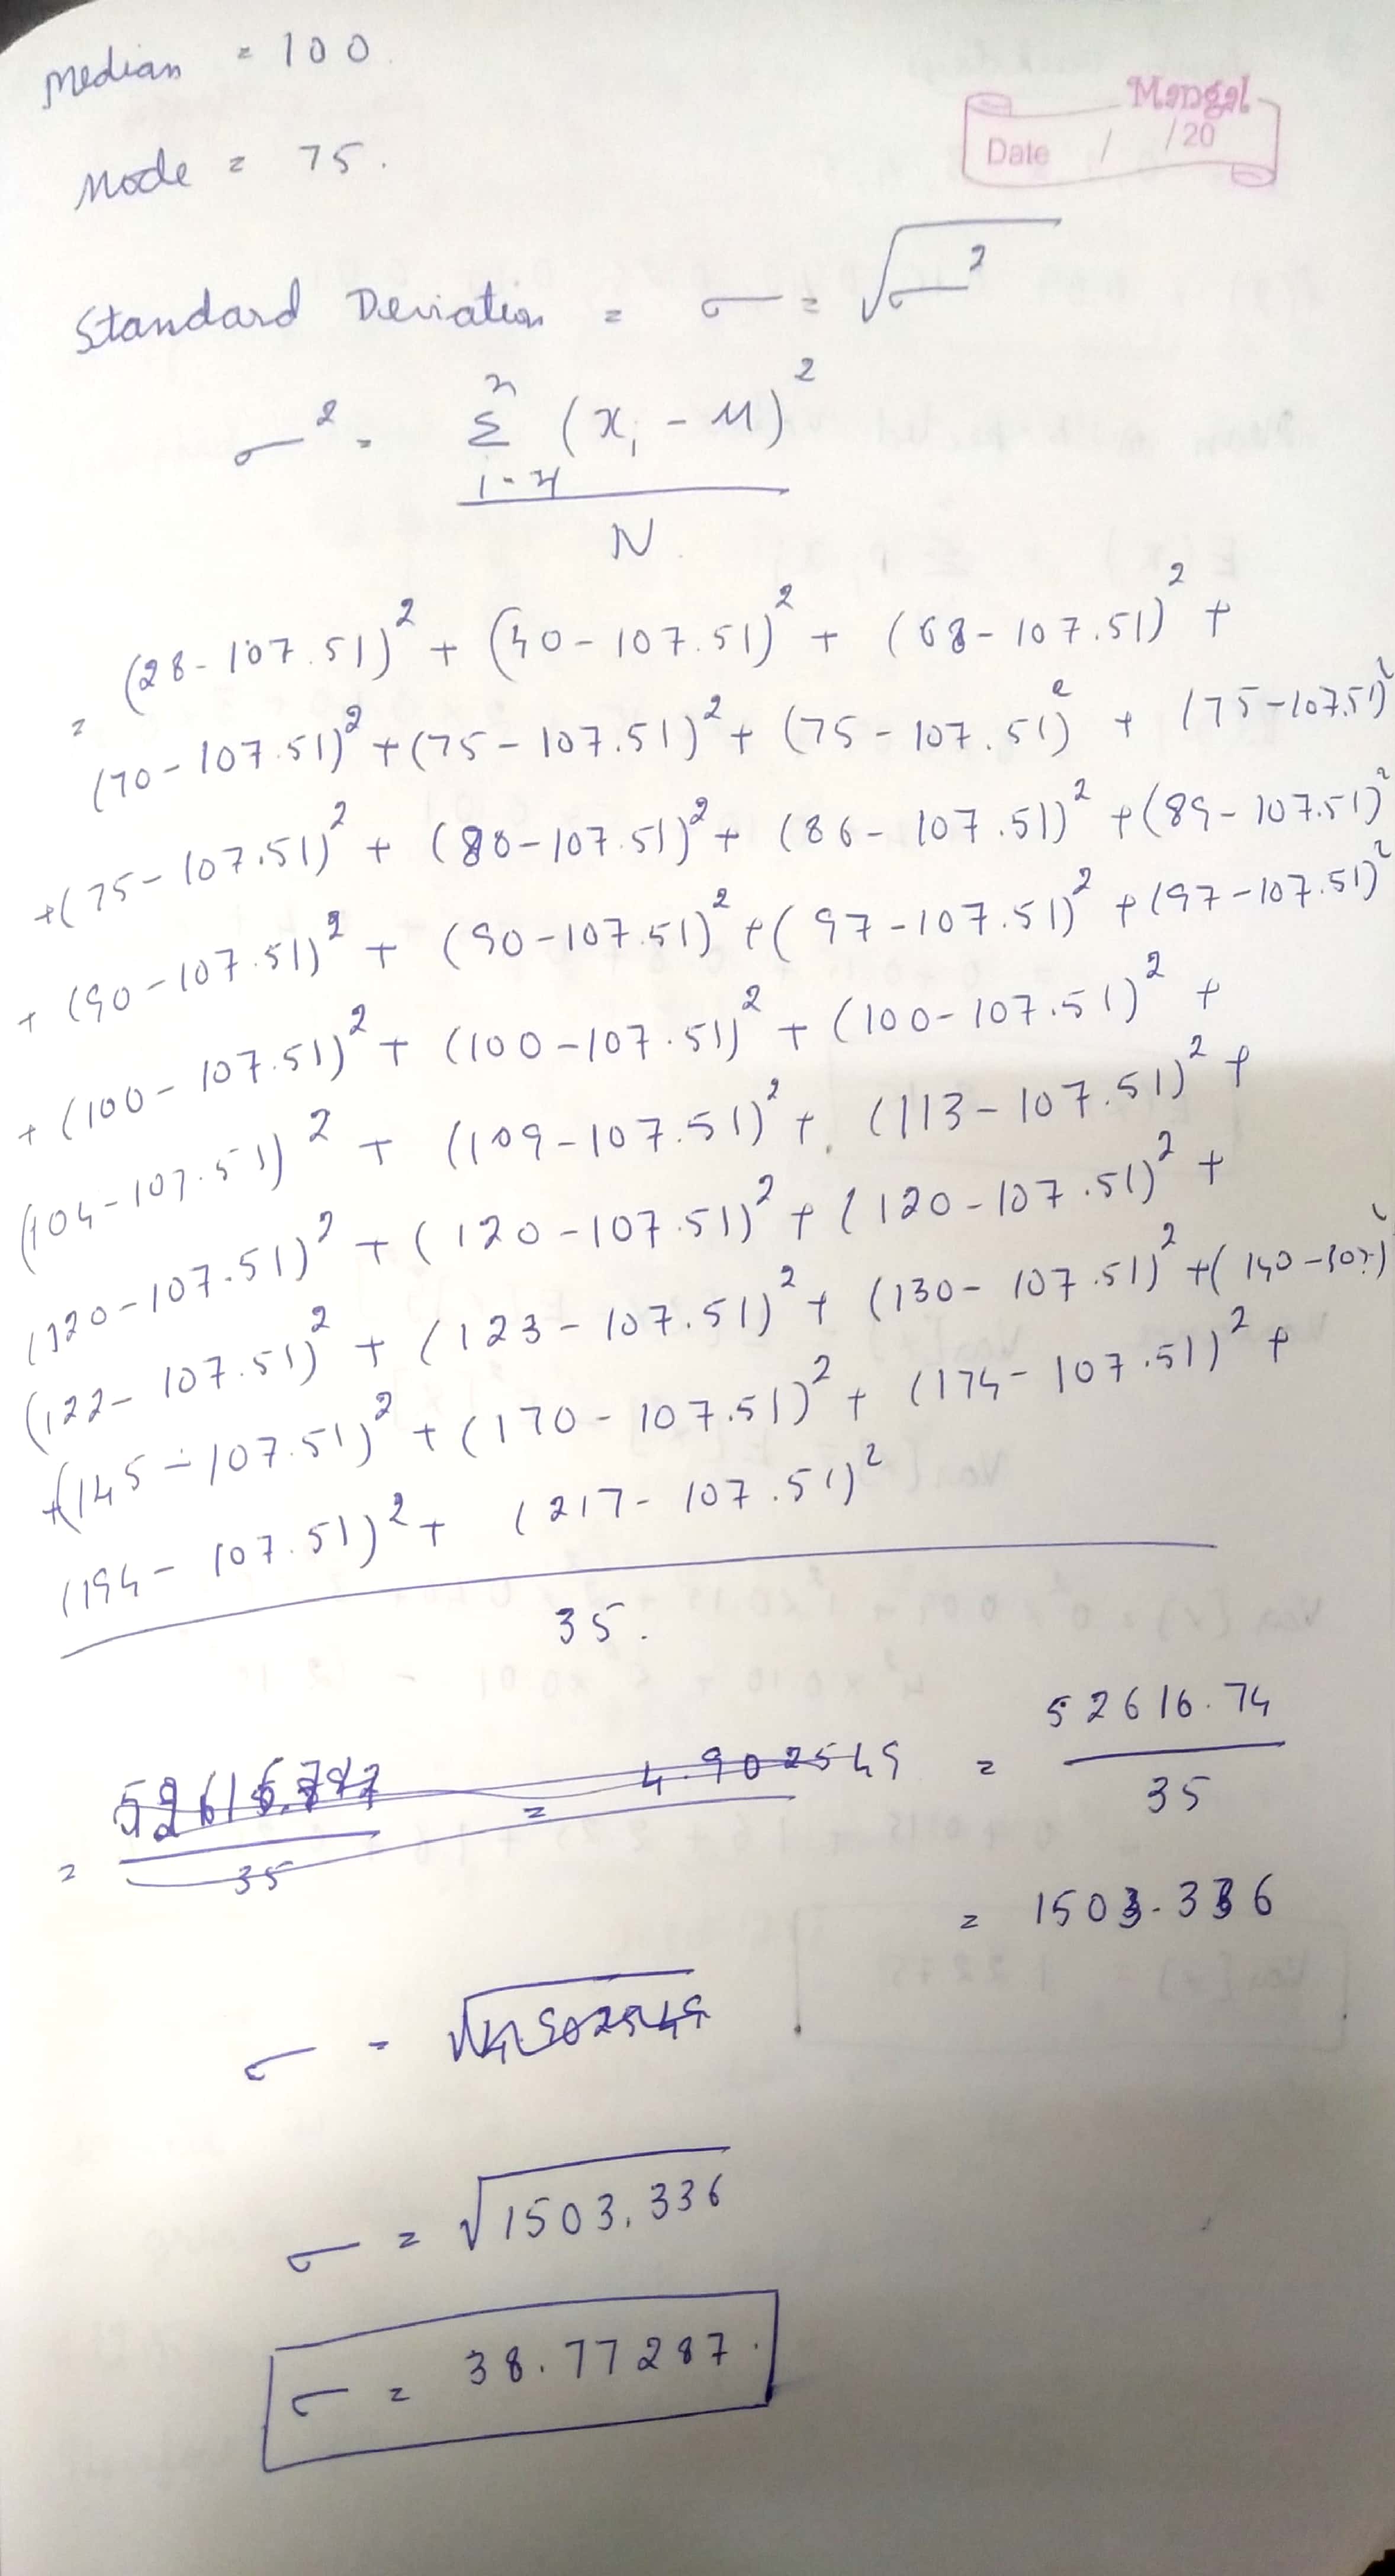 Median = 100.
Mangal
Date / /20
Mode = 75.
Standard Deviation = σ = √σ²
σ² = Σ (xᵢ - μ)²
N
= (28-107.51)² + (40-107.51)² + (68-107.51)² +
(70-107.51)² + (75-107.51)² + (75-107.51)² + (75-107.51)²
+(75-107.51)² + (80-107.51)² + (86-107.51)² + (89-107.51)²
+ (90-107.51)² + (90-107.51)² + (97-107.51)² + (97-107.51)²
+ (100-107.51)² + (100-107.51)² + (100-107.51)² +
(104-107.51)² + (109-107.51)² + (113-107.51)² +
(120-107.51)² + (120-107.51)² + (120-107.51)² +
(122-107.51)² + (123-107.51)² + (130-107.51)² +(140-107)²
+(145-107.51)² + (170-107.51)² + (174-107.51)² +
(194-107.51)² + (217-107.51)²
35.
= 35 = 4.902549 = 52616.74
35
= 1503.336
σ = √4.902549
σ = √1503.336
σ = 38.77287.